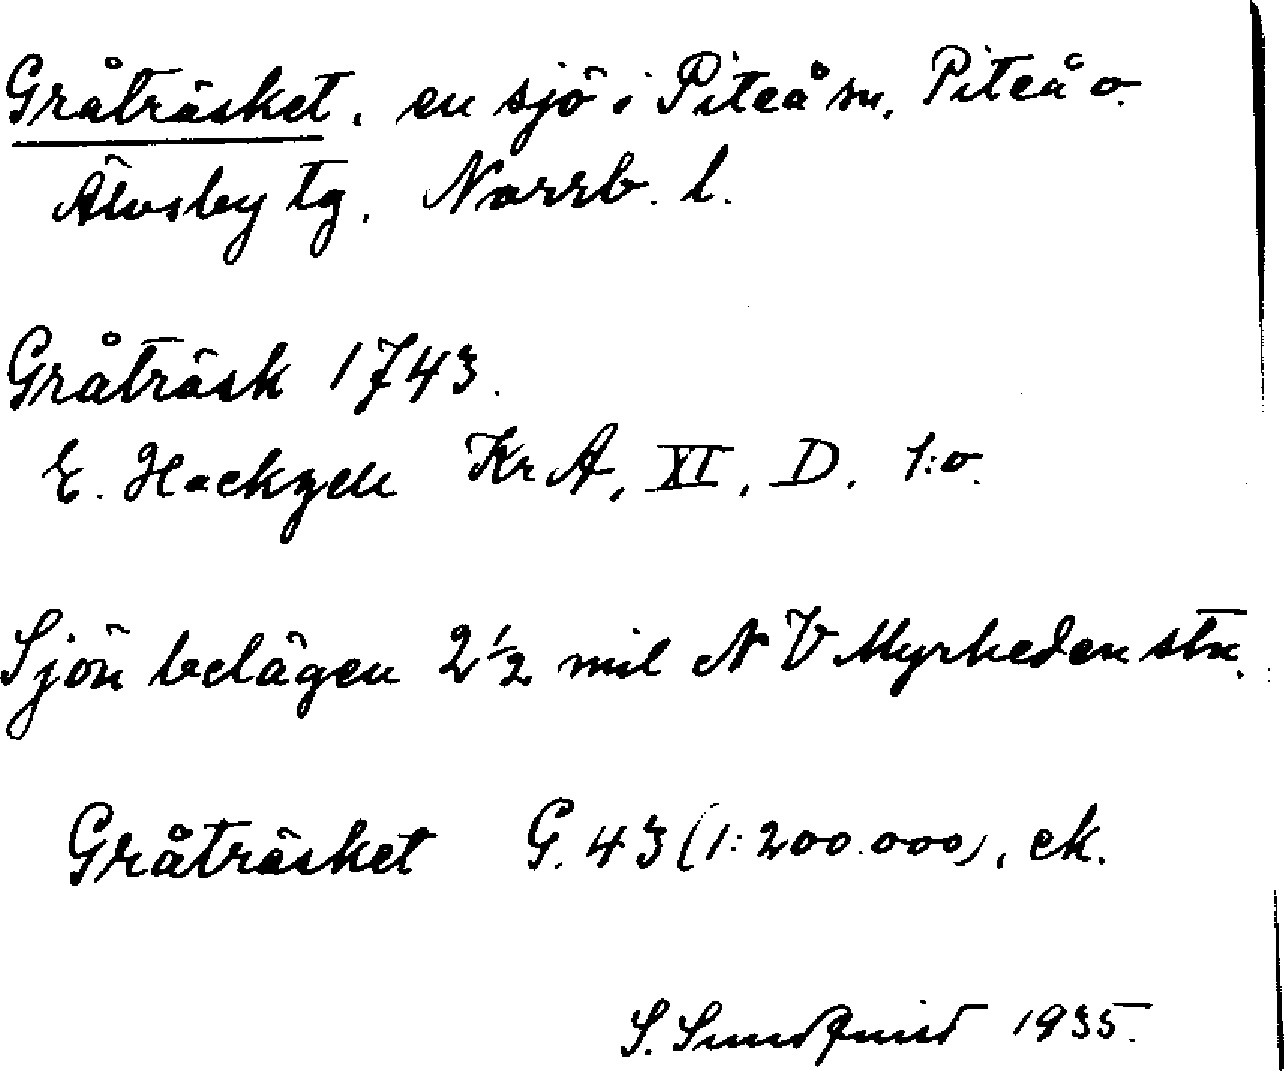 Gråträsket, en sjö i Piteå sn. Piteå o.
Älvsby tg. Norrb. l.
Gråträsk 1743.
E. Hackzell KrA, XI, D. 1:o.
Sjön belägen 2 1/2 mil NV Myrheden stn.
Gråträsket G. 43 (1:200.000), ek.
S. Sundquist 1935.